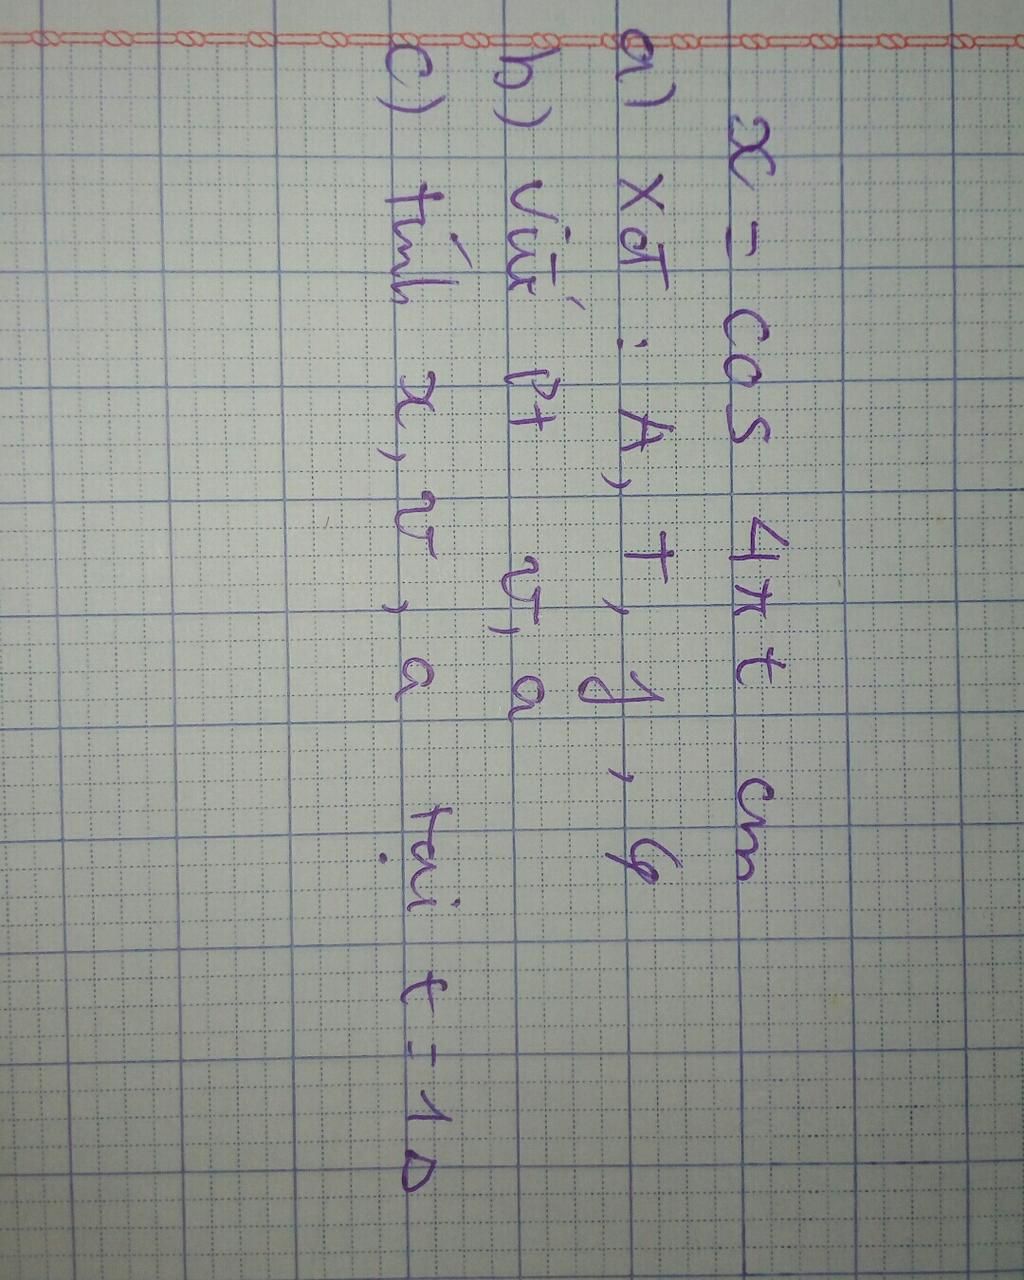 x = cos 4πt cm
a) xđ : A, T, f, φ
b) Viết Pt v, a
c) tính x, v, a tại t = 10